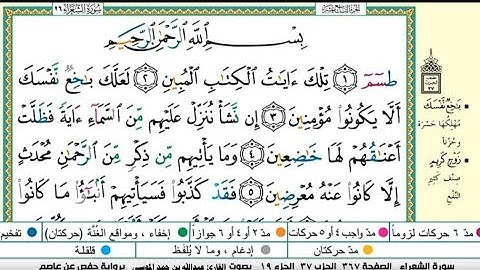 سُورَةُ الشُّعَرَاءِ ٢٦
الجزء التاسع عشر
بِسْمِ اللَّهِ الرَّحْمَٰنِ الرَّحِيمِ
طسٓمٓ ١ تِلْكَ ءَايَٰتُ الْكِتَٰبِ الْمُبِينِ ٢ لَعَلَّكَ بَٰخِعٌ نَّفْسَكَ
أَلَّا يَكُونُوا۟ مُؤْمِنِينَ ٣ إِن نَّشَأْ نُنَزِّلْ عَلَيْهِم مِّنَ السَّمَآءِ ءَايَةً فَظَلَّتْ
أَعْنَٰقُهُمْ لَهَا خَٰضِعِينَ ٤ وَمَا يَأْتِيهِم مِّن ذِكْرٍ مِّنَ الرَّحْمَٰنِ مُحْدَثٍ
إِلَّا كَانُوا۟ عَنْهُ مُعْرِضِينَ ٥ فَقَدْ كَذَّبُوا۟ فَسَيَأْتِيهِمْ أَنۢبَٰٓؤُا۟ مَا كَانُوا۟
بَٰخِعٌ نَّفْسَكَ
مُهْلِكُهَا حَسْرَةً
وَحُزْنًا
زَوْجٍ كَرِيمٍ
صِنْفٍ كَثِيرِ
النَّفْعِ
مدّ ٦ حركات لزوماً مدّ واجب ٤ أو ٥ حركات مدّ ٢ أو ٤ أو ٦ جوازاً إخفاء، ومواقع الغُنَّة (حركتان) تفخيم
مدّ حركتان إدغام، وما لا يُلفَظ قلقلة
سورة الشعراء الصفحة ٣٦٧ الحزب ٣٧ الجزء ١٩ بصوت القارئ: عبدالله بن حمد الموسى برواية حفص عن عاصم